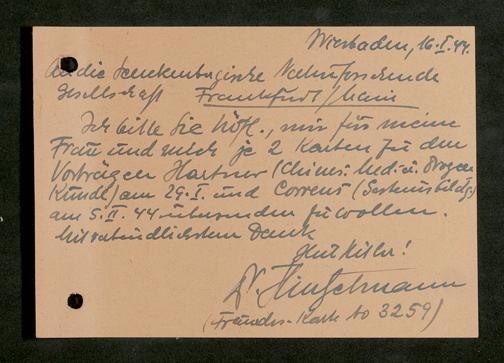 Wiesbaden, 16.I.44.
An die Senckenbergische Naturforschende
Gesellschaft Frankfurt/Main
Ich bitte Sie höfl., mir für meine
Frau und mich je 2 Karten zu den
Vorträgen Hartner (Chines. Med. u. Drogen
kunde) am 29.I. und Correns (Gesteinsbildg)
am 5.II.44 übersenden zu wollen.
Mit verbindlichstem Dank
Heil Hitler!
Dr.
(Freundes-Karte No 3259)